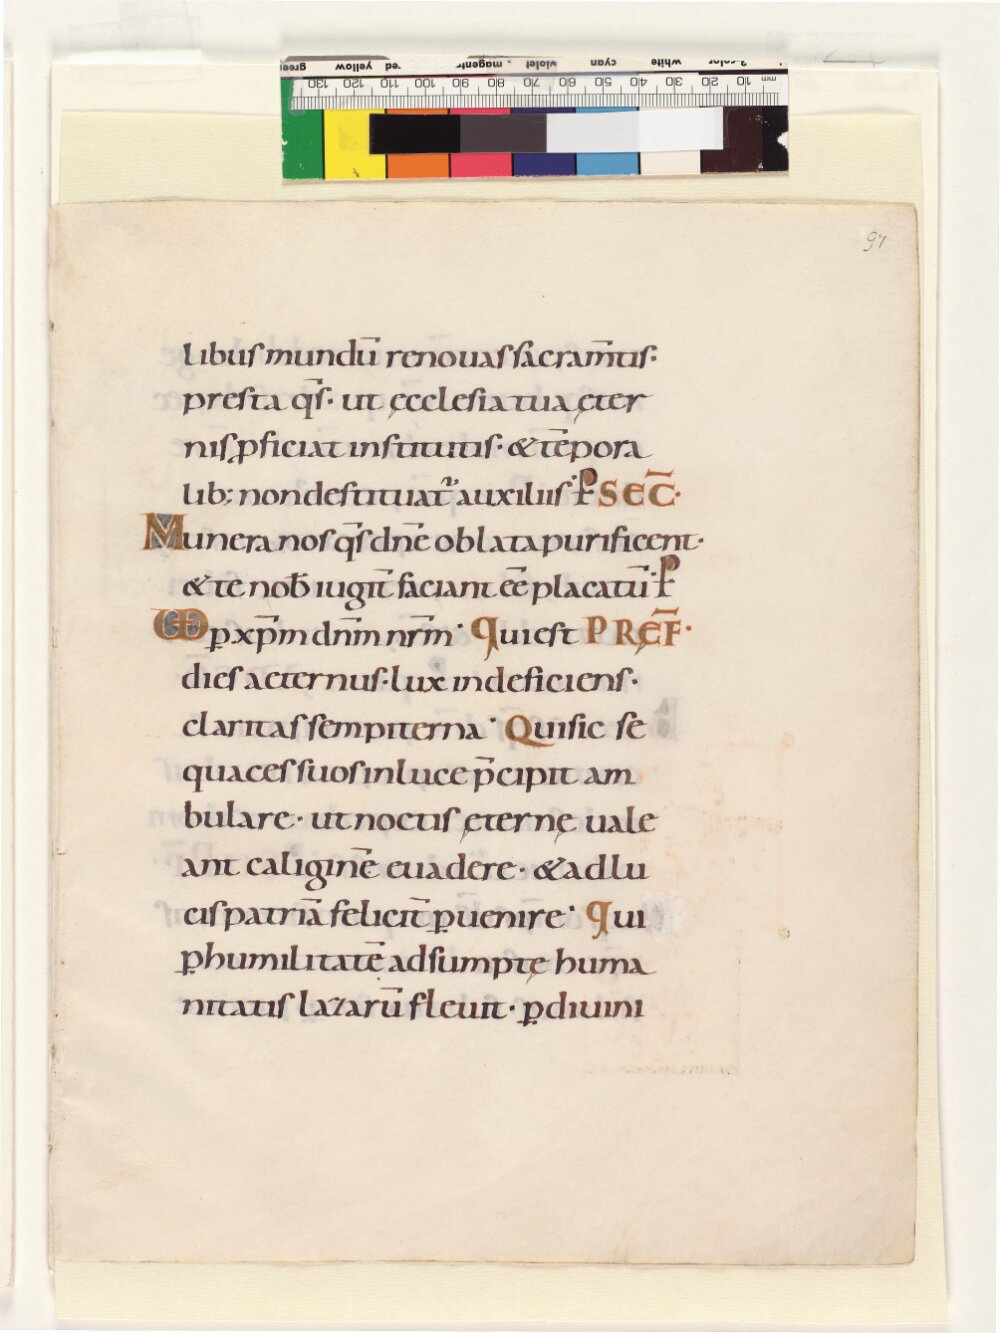 green yellow red magenta violet cyan white 3-color
130 120 110 100 90 80 70 60 50 40 30 20 10 mm
97
libuſ mundū renouaſ ſacram̄tiſ·
preſta q̄ſ· ut ęccleſia tua ęter
niſ ꝓficiat inſtitutiſ· & tēpora
lib; non deſtituat᷑ auxiliiſ· P̲ SEC̄·
Munera noſ q̄ſ dn̄e oblata purificent·
& te nob̄ iugit̄ faciant eē placatū· P̲
VD ꝑ xp̄m dn̄m nr̄m· Qui eſt PRĘF̄·
dieſ aeternuſ· lux indeficienſ·
claritaſ ſempiterna· Qui ſic ſe
quaceſ ſuoſ in luce p̄cipit am
bulare· ut noctiſ ęternę uale
ant caliginē euadere· & ad lu
ciſ patriā felicit̄ ꝑuenire· Qui
ꝑ humilitatē adſumptę huma
nitatiſ lazarū fleuit· ꝑ diuini